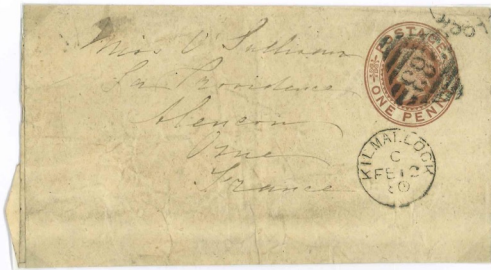 Miss O'Sullivan
La Providence
Alencon
Orne
France
POSTAGE
ONE PENNY
KILMALLOCK
C
FE 12
80